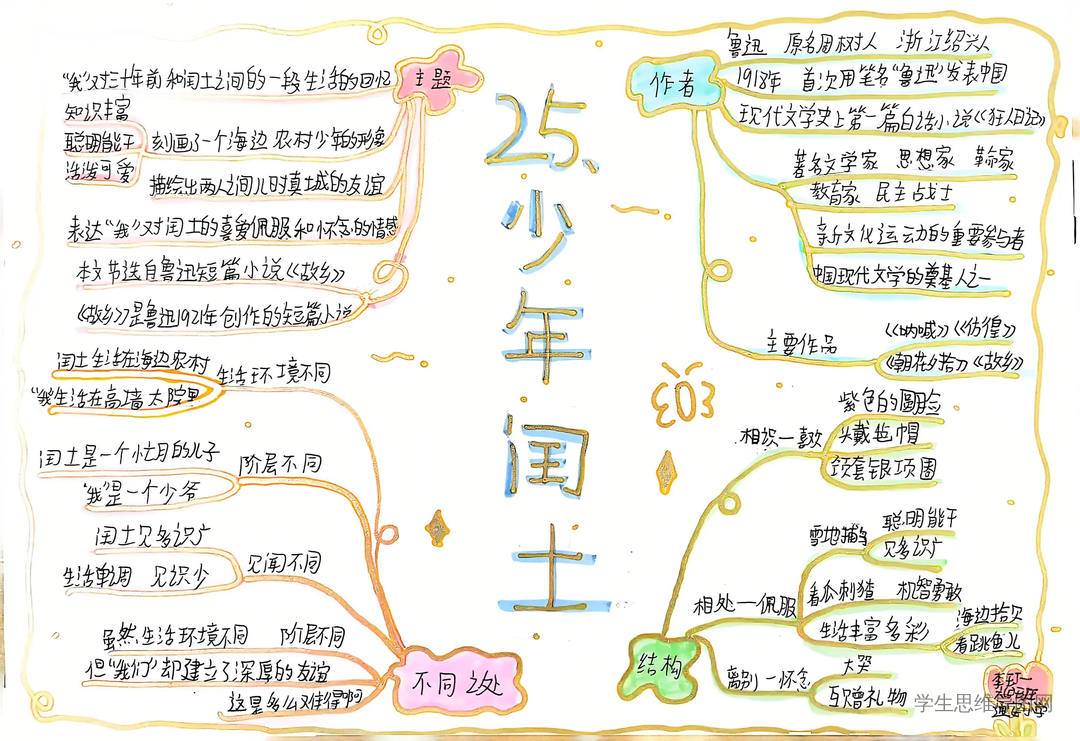 25、少年闰土
主题
"我"对三十年前和闰土之间的一段生活的回忆
知识丰富
聪明能干
活泼可爱
刻画了一个海边农村少年的形象
描绘出两人之间儿时真诚的友谊
表达"我"对闰土的喜爱佩服和怀念的情感
本文节选自鲁迅短篇小说《故乡》
《故乡》是鲁迅1921年创作的短篇小说
作者
鲁迅 原名周树人 浙江绍兴人
1918年 首次用笔名"鲁迅"发表中国
现代文学史上第一篇白话小说《狂人日记》
著名文学家 思想家 革命家
教育家 民主战士
新文化运动的重要参与者
中国现代文学的奠基人之一
主要作品
《呐喊》《彷徨》
《朝花夕拾》《故乡》
不同之处
生活环境不同
闰土生活在海边农村
"我"生活在高墙大院里
阶层不同
闰土是一个忙月的儿子
"我"是一个少爷
见闻不同
闰土见多识广
生活单调 见识少
虽然生活环境不同 阶层不同
但"我们"却建立了深厚的友谊
这里多么难得啊
结构
相识—喜欢
紫色的圆脸
头戴毡帽
颈套银项圈
相处—佩服
雪地捕鸟
聪明能干
见多识广
看瓜刺猹 机智勇敢
生活丰富多彩
海边拾贝
看跳鱼儿
离别—怀念
大哭
互赠礼物
学生思维导图网